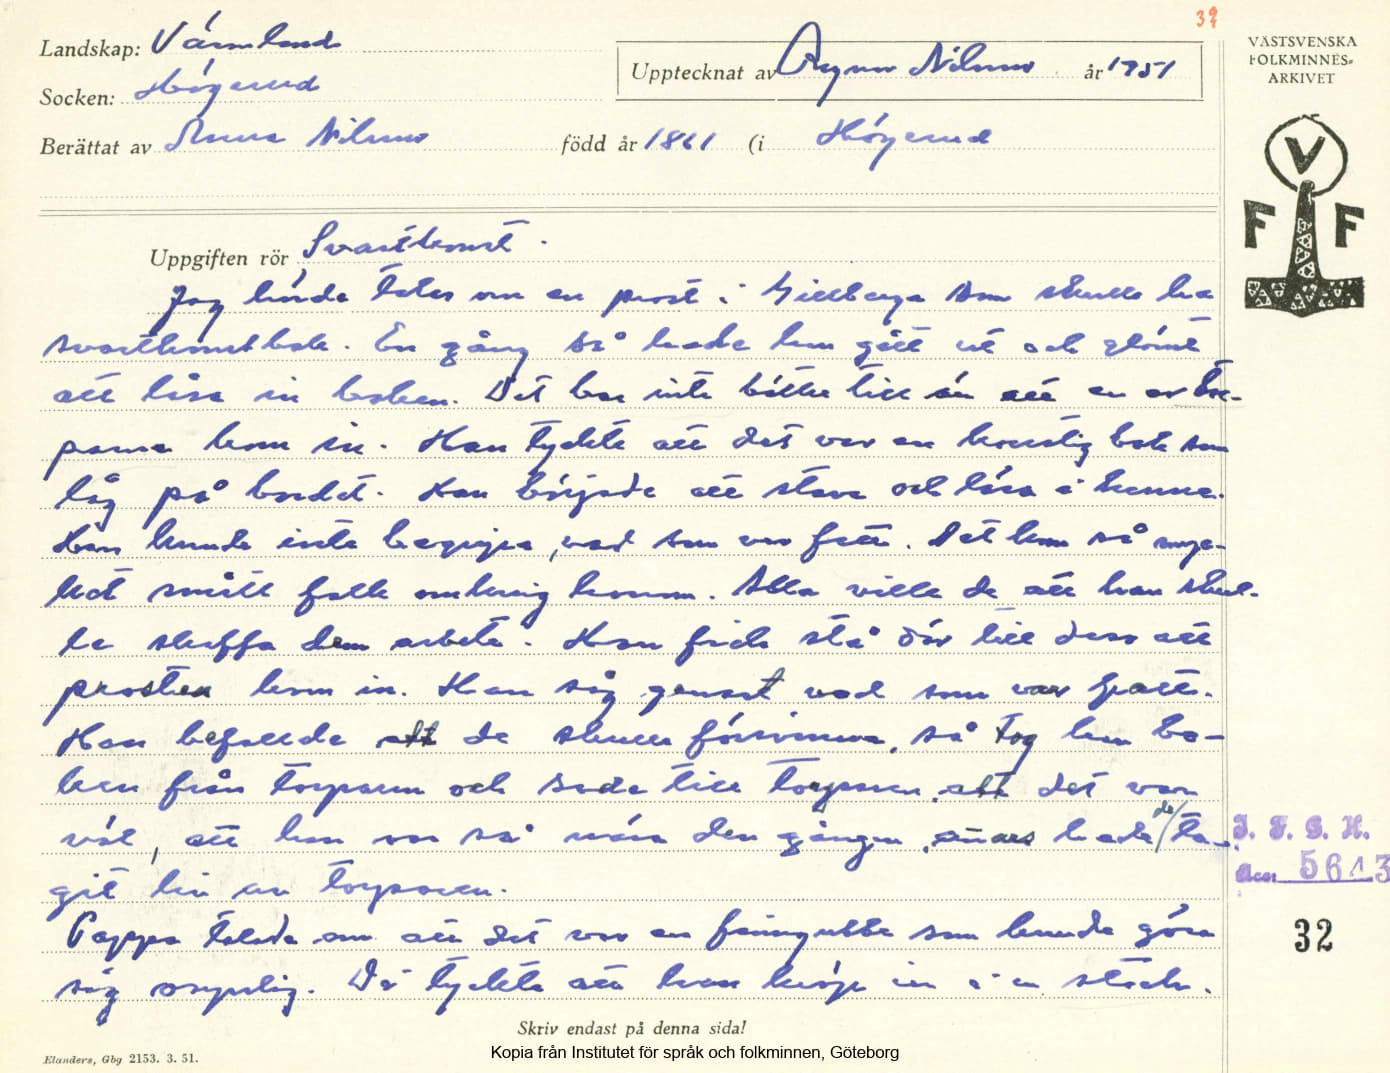 39
Landskap: Värmland
Socken: Högerud
Berättat av Anna Nilsson född år 1861 (i Högerud
Upptecknat av Ragnar Nilsson år 1951
VÄSTSVENSKA
FOLKMINNES-
ARKIVET
V
F F
Uppgiften rör Svartkonst.
Jag hörde talas om en prost i Gillberga som skulle ha
svartkonstbok. En gång så hade han gått ut och glömt
att låsa in boken. Det bar inte bättre till än att en av tor-
parna kom in. Han tyckte att det var en konstig bok som
låg på bordet. Han började att stava och läsa i henne.
Han kunde inte begripa, vad som var fatt. Det kom så myc-
ket smått folk omkring honom. Alla ville de att han skul-
le skaffa dem arbete. Han fick stå där till dess att
prosten kom in. Han såg genast vad som var fatt.
Han befallde att de skulle försvinna, så tog han bo-
ken från torparen och sade till torparen, att det var
väl, att han var så nära den gången, annars hade de ta-
git liv av torparen.
Pappa talade om att det var en finngubbe som kunde göra
sig osynlig. Då tyckte att han kröp in i en stock.
I. F. G. H.
Acc 5613
32
Skriv endast på denna sida!
Elanders, Gbg 2153. 3. 51.
Kopia från Institutet för språk och folkminnen, Göteborg